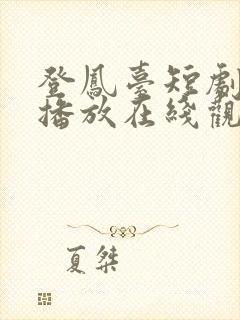 登鳳臺短劇
播放在綫觀
夏桀